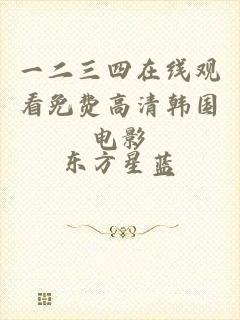 一二三四在线观
看免费高清韩国
电影
东方星蓝